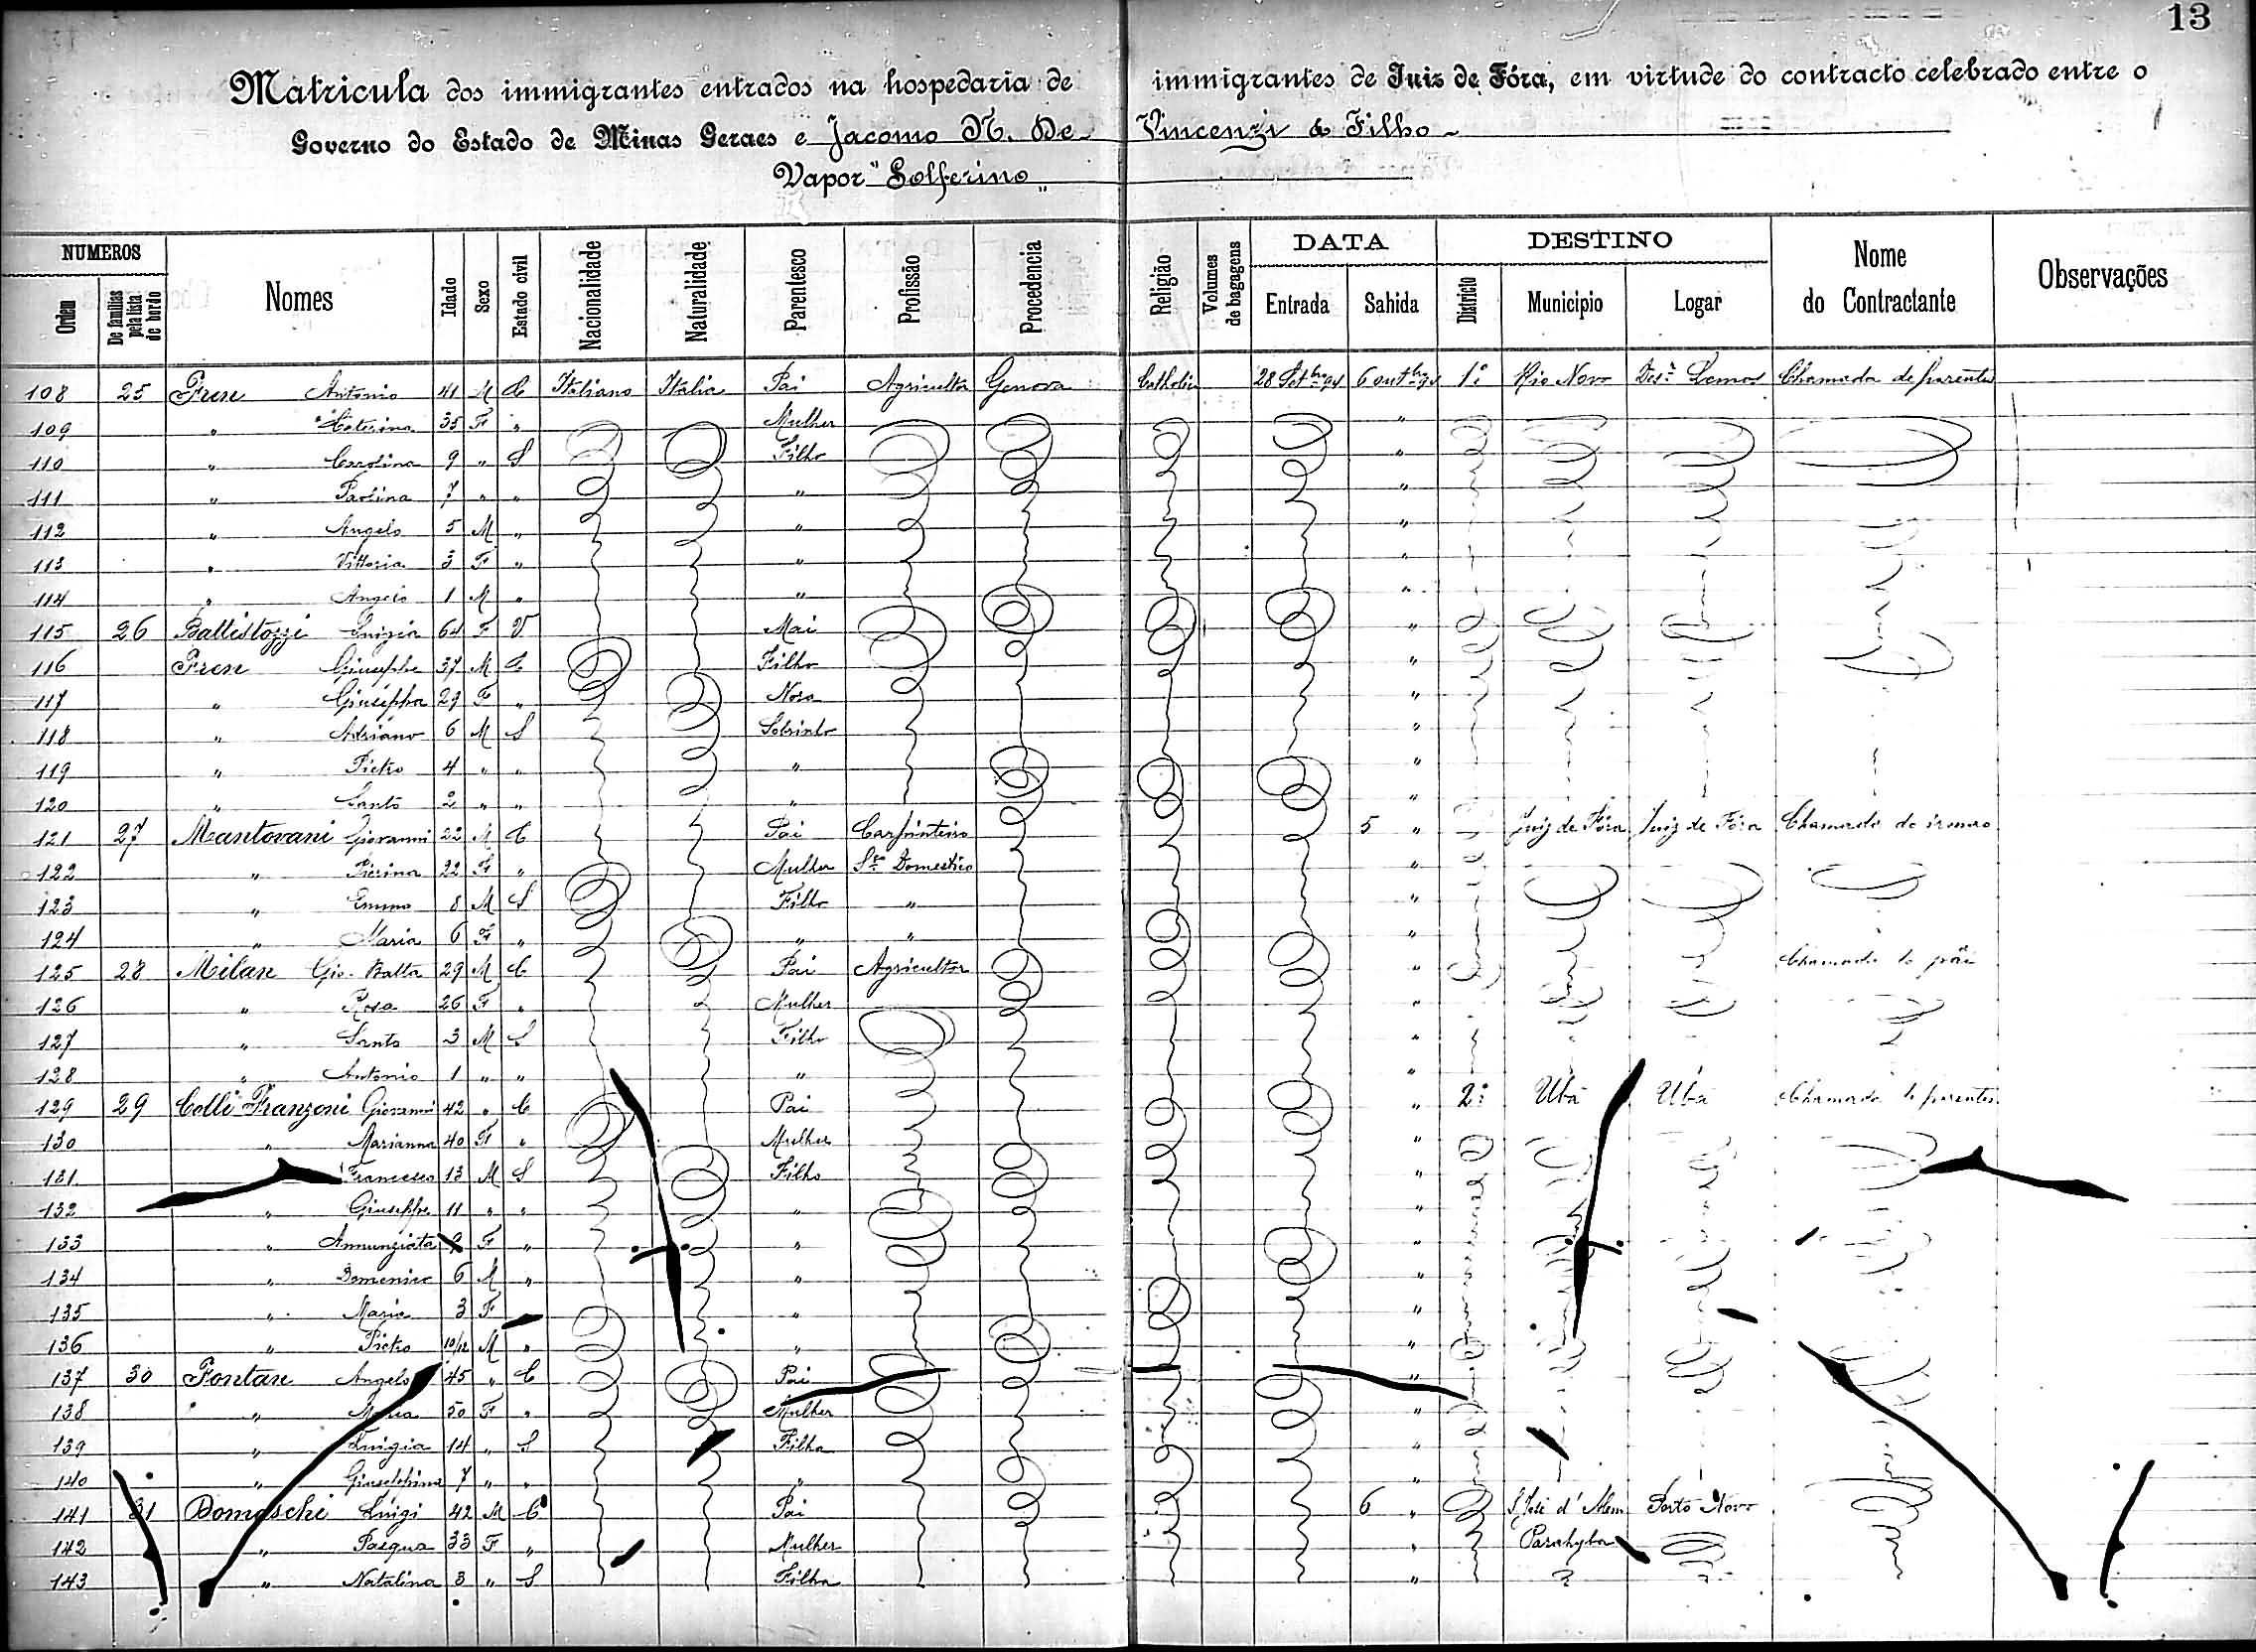 13
Matricula dos immigrantes entrados na hospedaria de immigrantes de Juiz de Fóra, em virtude do contracto celebrado entre o
Governo do Estado de Minas Geraes e Jacomo N. De Vincenzi & Filho
Vapor "Solferino"
NUMEROS DATA DESTINO
Ordem De familias pela lista de bordo Nomes Idade Sexo Estado civil Nacionalidade Naturalidade Parentesco Profissão Procedencia Religião Volumes de bagagens Entrada Sahida Districto Municipio Logar Nome do Contractante Observações
108 25 Antonio 41 M C Italiano Italia Pai Agricultor Genova 1º Rio Novo Lemos Chamada de parentes
109 " Caterina 35 F " Mulher "
110 " Carolina 9 " S Filho "
111 " Paolina 7 " " " "
112 " Angelo 5 M " " "
113 " Vittoria 3 F " " "
114 " Angelo 1 M " " "
115 26 Luigia 64 F V Mai "
116 Giuseppe 37 M C Filho "
117 " Giuseppa 29 F " Nora "
118 " Adriano 6 M S Sobrinho "
119 " Pietro 4 " " " "
120 " Santo 2 " " " "
121 27 Mantovani Giovanni 22 M C Pai Carpinteiro 5 " Juiz de Fóra Juiz de Fóra Chamado do irmao
122 " Pierina 22 F " Mulher Sço Domestico "
123 " 8 M S Filho " "
124 " Maria 6 F " " " "
125 28 Milan Gio. Batta 29 M C Pai Agricultor " Chamado do
126 " Rosa 26 F " Mulher "
127 " Santo 3 M S Filho "
128 " Antonio 1 " " " "
129 29 Celli Franzoni Giovanni 42 " C Pai " 2º Ubá Ubá Chamado de parentes
130 " Marianna 40 F " Mulher "
131 Francesco 13 M S Filho "
132 " Giuseppe 11 " " " "
133 " Annunziata 9 F " " "
134 " Domenico 6 M " " "
135 " Maria 3 F " "
136 " Pietro 10/12 M " " "
137 30 Fontan Angelo 45 " C Pai "
138 " Maria 50 F " Mulher "
139 " Luigia 14 " S Filha "
140 " Giuseppina 7 " " " "
141 31 Domeschi Luigi 42 M C Pai 6 " S. José d'Alem Porto Novo
142 " Pasqua 33 F " Mulher " Parahyba
143 " Natalina 3 " S Filha "